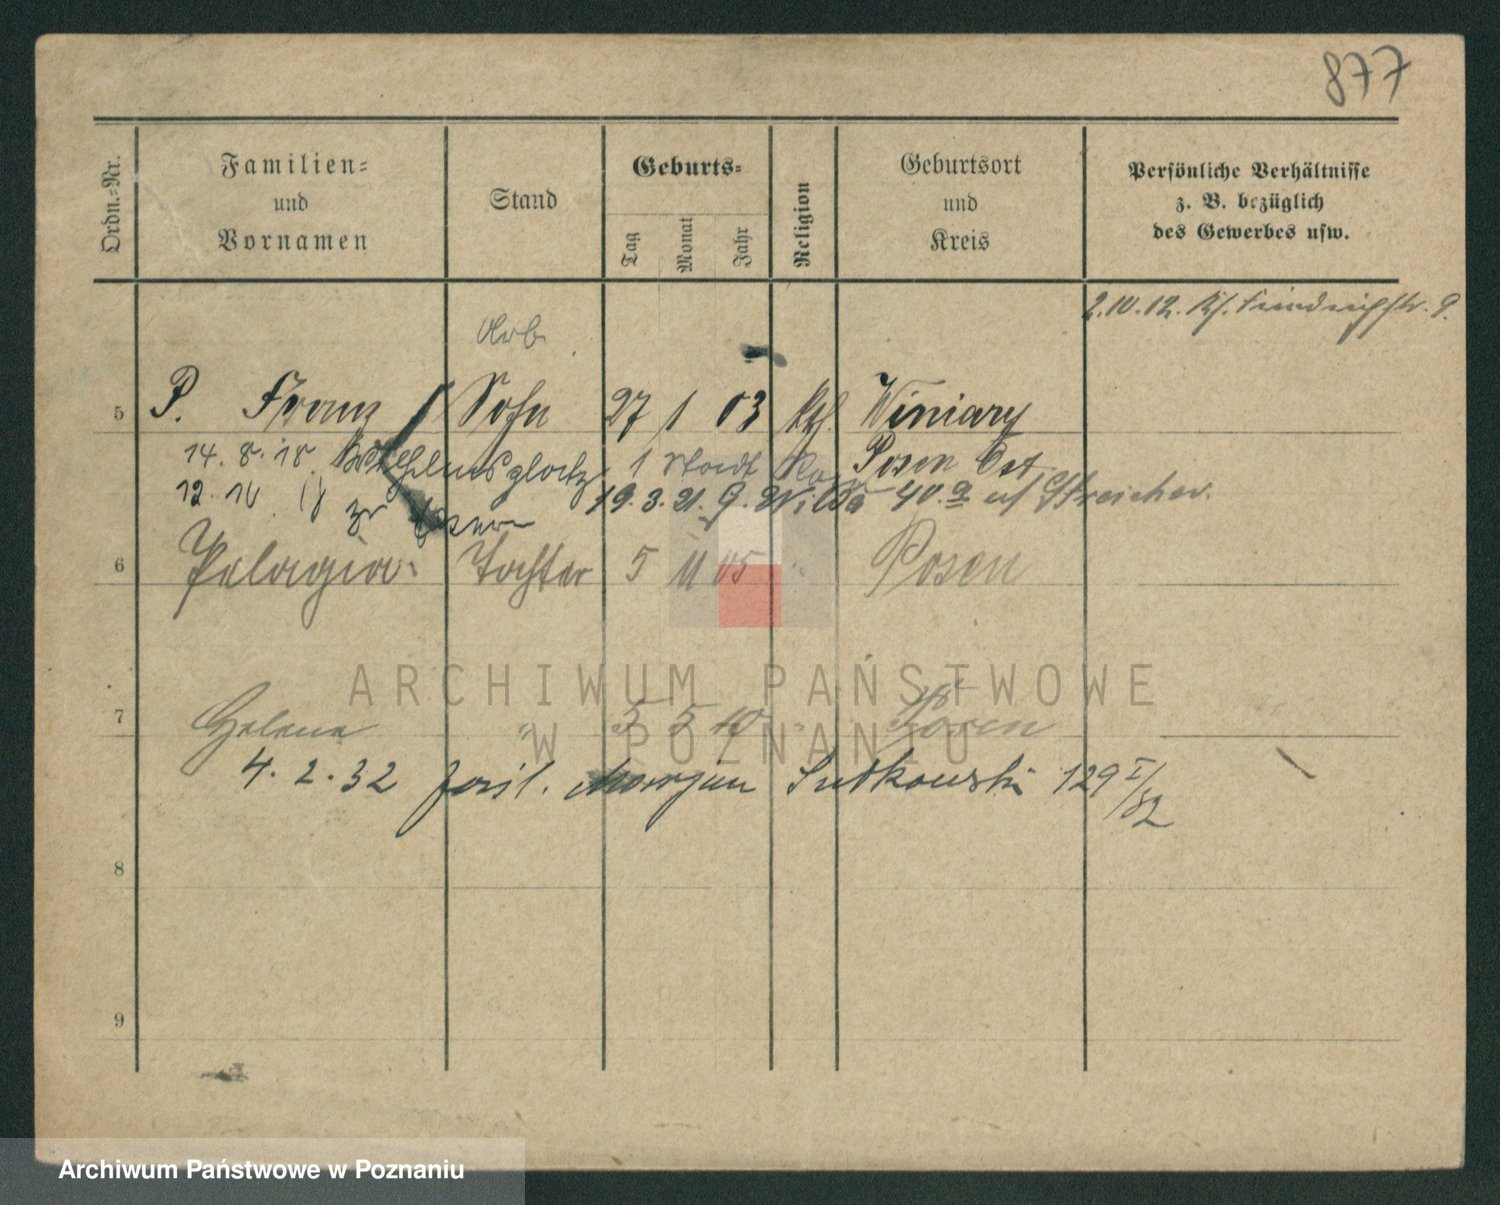 877
Ordn.-Nr.
Familien-
und
Vornamen
Stand
Geburts-
Tag
Monat
Jahr
Religion
Geburtsort
und
Kreis
Persönliche Verhältnisse
z. B. bezüglich
des Gewerbes usw.
2.10.12.
Arb.
5 P. Franz Sohn 27 1 03 Kth. Winiary
14. 8. 18. Wilhelmsplatz 1 Stadt Posen Ost
12. 10. 18 zu 19. 3. 21. G. Wilda 40. a
6 Pelagia Tochter 5 11 05 " Posen
7 Helene " 5 5 10 " Posen
4. 2. 32 Marjan Sutkowski 129 I/32
8
9
ARCHIWUM PAŃSTWOWE
W POZNANIU
Archiwum Państwowe w Poznaniu